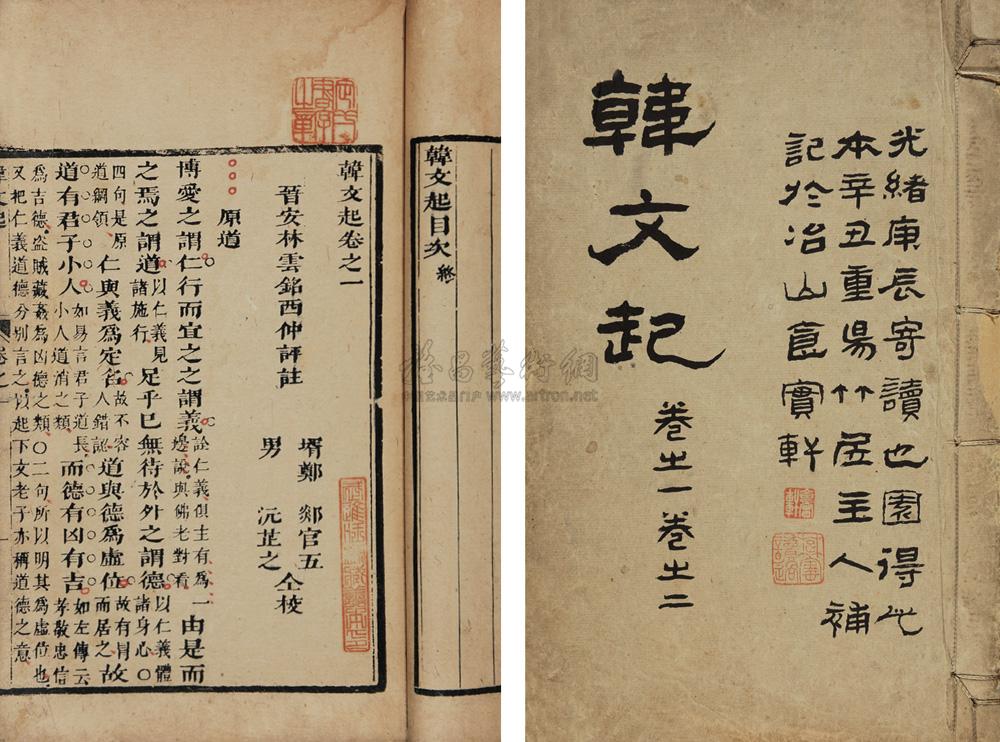 光緒庚辰寄讀也園得此
本辛丑重昜竹居主人補
記於冶山食實軒
韓文起 卷之一卷之二
韓文起目次 終
韓文起卷之一
晉安林雲銘西仲評註
壻鄭 郯官五
男 沅芷之 仝校
原道
博愛之謂仁行而宜之之謂義詮仁義俱主有爲一邊說與佛老對看由是而
之焉之謂道以仁義見諸施行足乎已無待於外之謂德以仁義體諸身心○
四句是原道綱領仁與義爲定名故不容人錯認道與德爲虛位故有冒而居之故
道有君子小人如易言君子道長小人道消之類而德有凶有吉如左傳云孝敬忠信
爲吉德盜賊藏姦爲凶德之類○二句所以明其爲虛位也
又把仁義道德分別言之以起下文老子亦稱道德之意
雅昌藝術網
www.artron.net